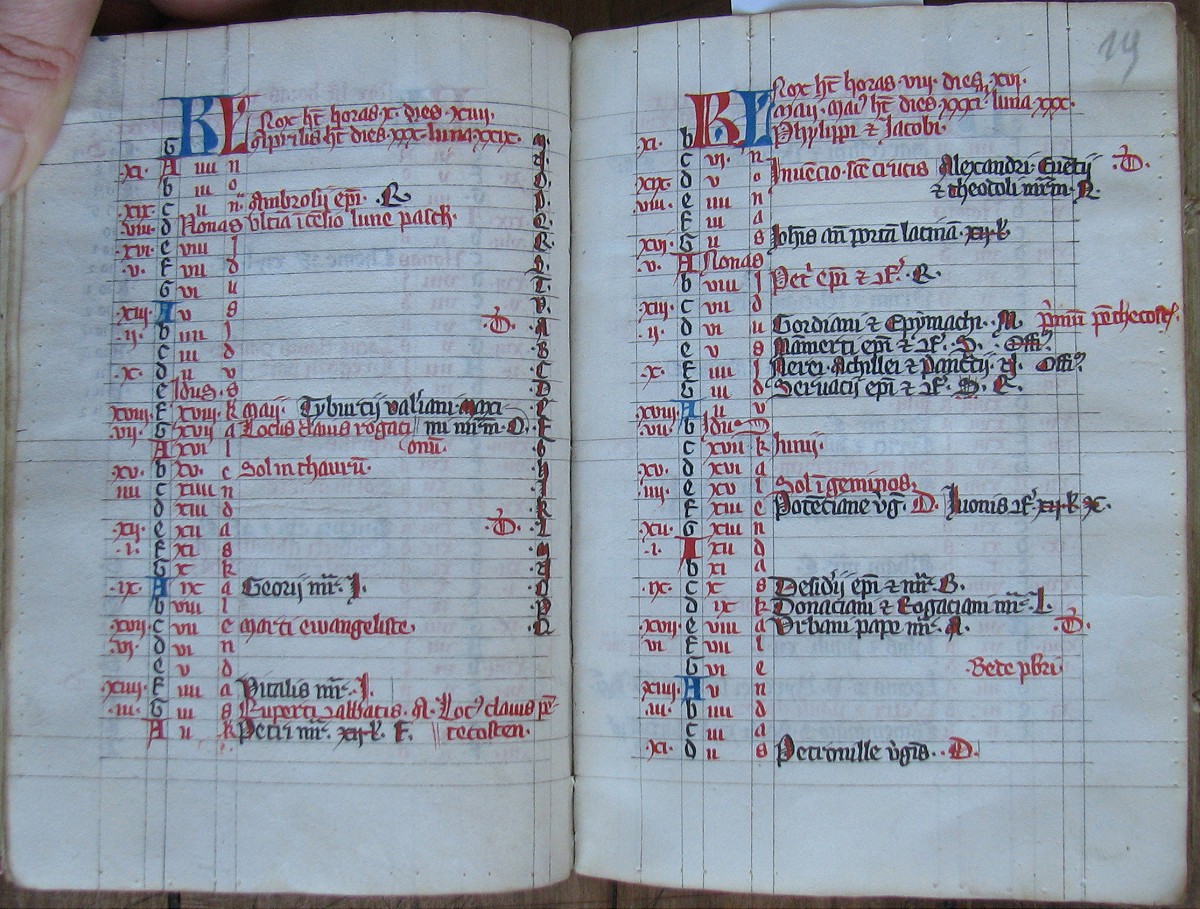 KL Nox ht horas x dies xiiii.
G Aprilis ht dies xxx luna xxix.
.xi. A iiii n
b iii o
.xix. c ii n Ambrosij epi. R
viii d Nonas Vltia i celio lune pasch.
.xvi. e viii j
.v. f vii d
G vi u
.xiii. A v s
.ii. b iiii j
c iii d
.x. d ii v
e Idus. s
xviii. f xviii k maij. Tyburcij valiani maxi
.vii. G xvii a Locus clauis rogaci mi mrm. D.
A xvi l onu.
.xv. b xv. c Sol in thauru.
iiii c xiiii n
d xiii d
.xii. e xii a
.i. f xi s
G x k
.ix. A ix a Georij mr. J.
b viii l
.xvii. c vii e marci ewangeliste.
.vi. d vi n
e v d
.xiiii. f iiii a Vitalis mr. J.
.iii. G iii s Ruperti abbatis. A. Loc clauis pe
A ii k Petri mr. xii k. F. tecosten.
19
KL Nox ht horas viii dies xvi.
maij. mai ht dies xxxi luna xxx.
.xi. b Phylippi & Jacobi.
c vi n
.xix. d v o Inuecio sce crucis Alexandri Euetij
viii. e iiii n & theodoli mrm. N.
f iii a
.xvi. G ii s Johis an porta latina xii k
.v. A Nonas
b viii j Pet epi & cf. R.
.xiii. c vii d
.ii. d vi u Gordiani & Epymachi. M. primu pethecost.
e v s Mamerti epi & cf. S. Off.
.x. f iiii j Nerei Achillei & Pancratij. Off.
G iii d Seruacij epi & cf. S. C.
xviii. A ii v
.vii. b Idus
c xvii k Junij.
.xv. d xvi a
.iiii. e xv l Sol i geminos.
f xiiii e Potenciane vg. D. Juonis cf. xii k X.
.xii. G xiii n
.i. A xii d
b xi a
.ix. c x s Desidij epi & mr. B.
d ix k Donaciani & Rogaciani mr. L.
.xvii. e viii a Vrbani pape mr. A.
vi f vii l
G vi e Bede pbri.
.xiiii. A v n
.iii. b iiii d
c iii a
.xi. d ii s Petronille vgis. D.